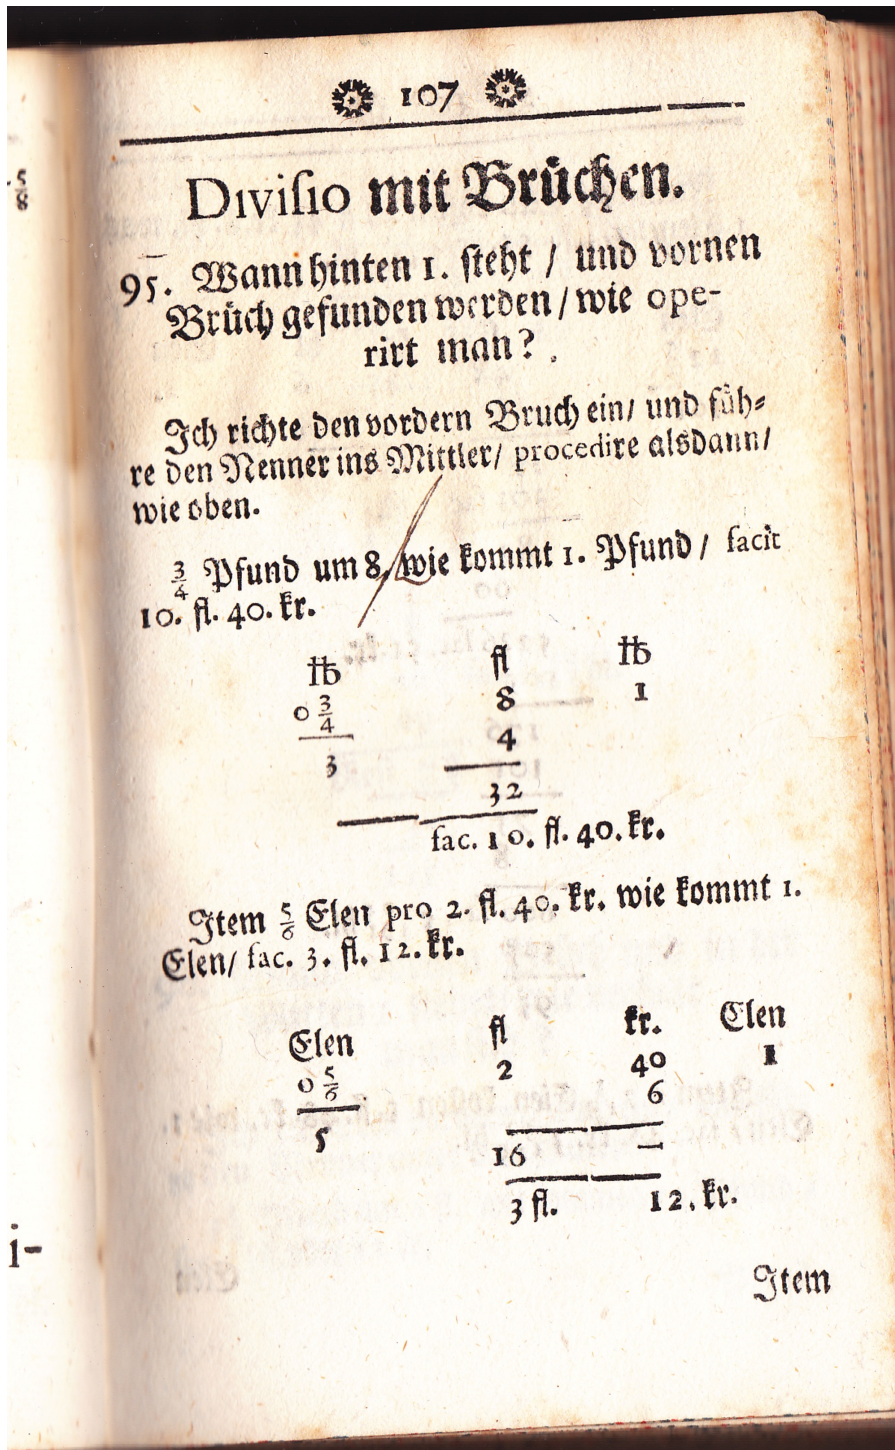 107
Diviſio mit Brüchen.
95. Wann hinten 1. ſteht / und vornen
Brüch gefunden werden / wie ope-
rirt man?
Ich richte den vordern Bruch ein / und füh-
re den Nenner ins Mittler / procedire alsdann /
wie oben.
3/4 Pfund um 8. wie kommt 1. Pfund / facit
10. fl. 40. kr.
℔ fl ℔
0 3/4 8 1
4
3
32
fac. 10. fl. 40. kr.
Item 5/6 Elen pro 2. fl. 40. kr. wie kommt 1.
Elen / fac. 3. fl. 12. kr.
Elen fl kr. Elen
0 5/6 2 40 1
6
5
16 —
3 fl. 12. kr.
Item
5/8
i-